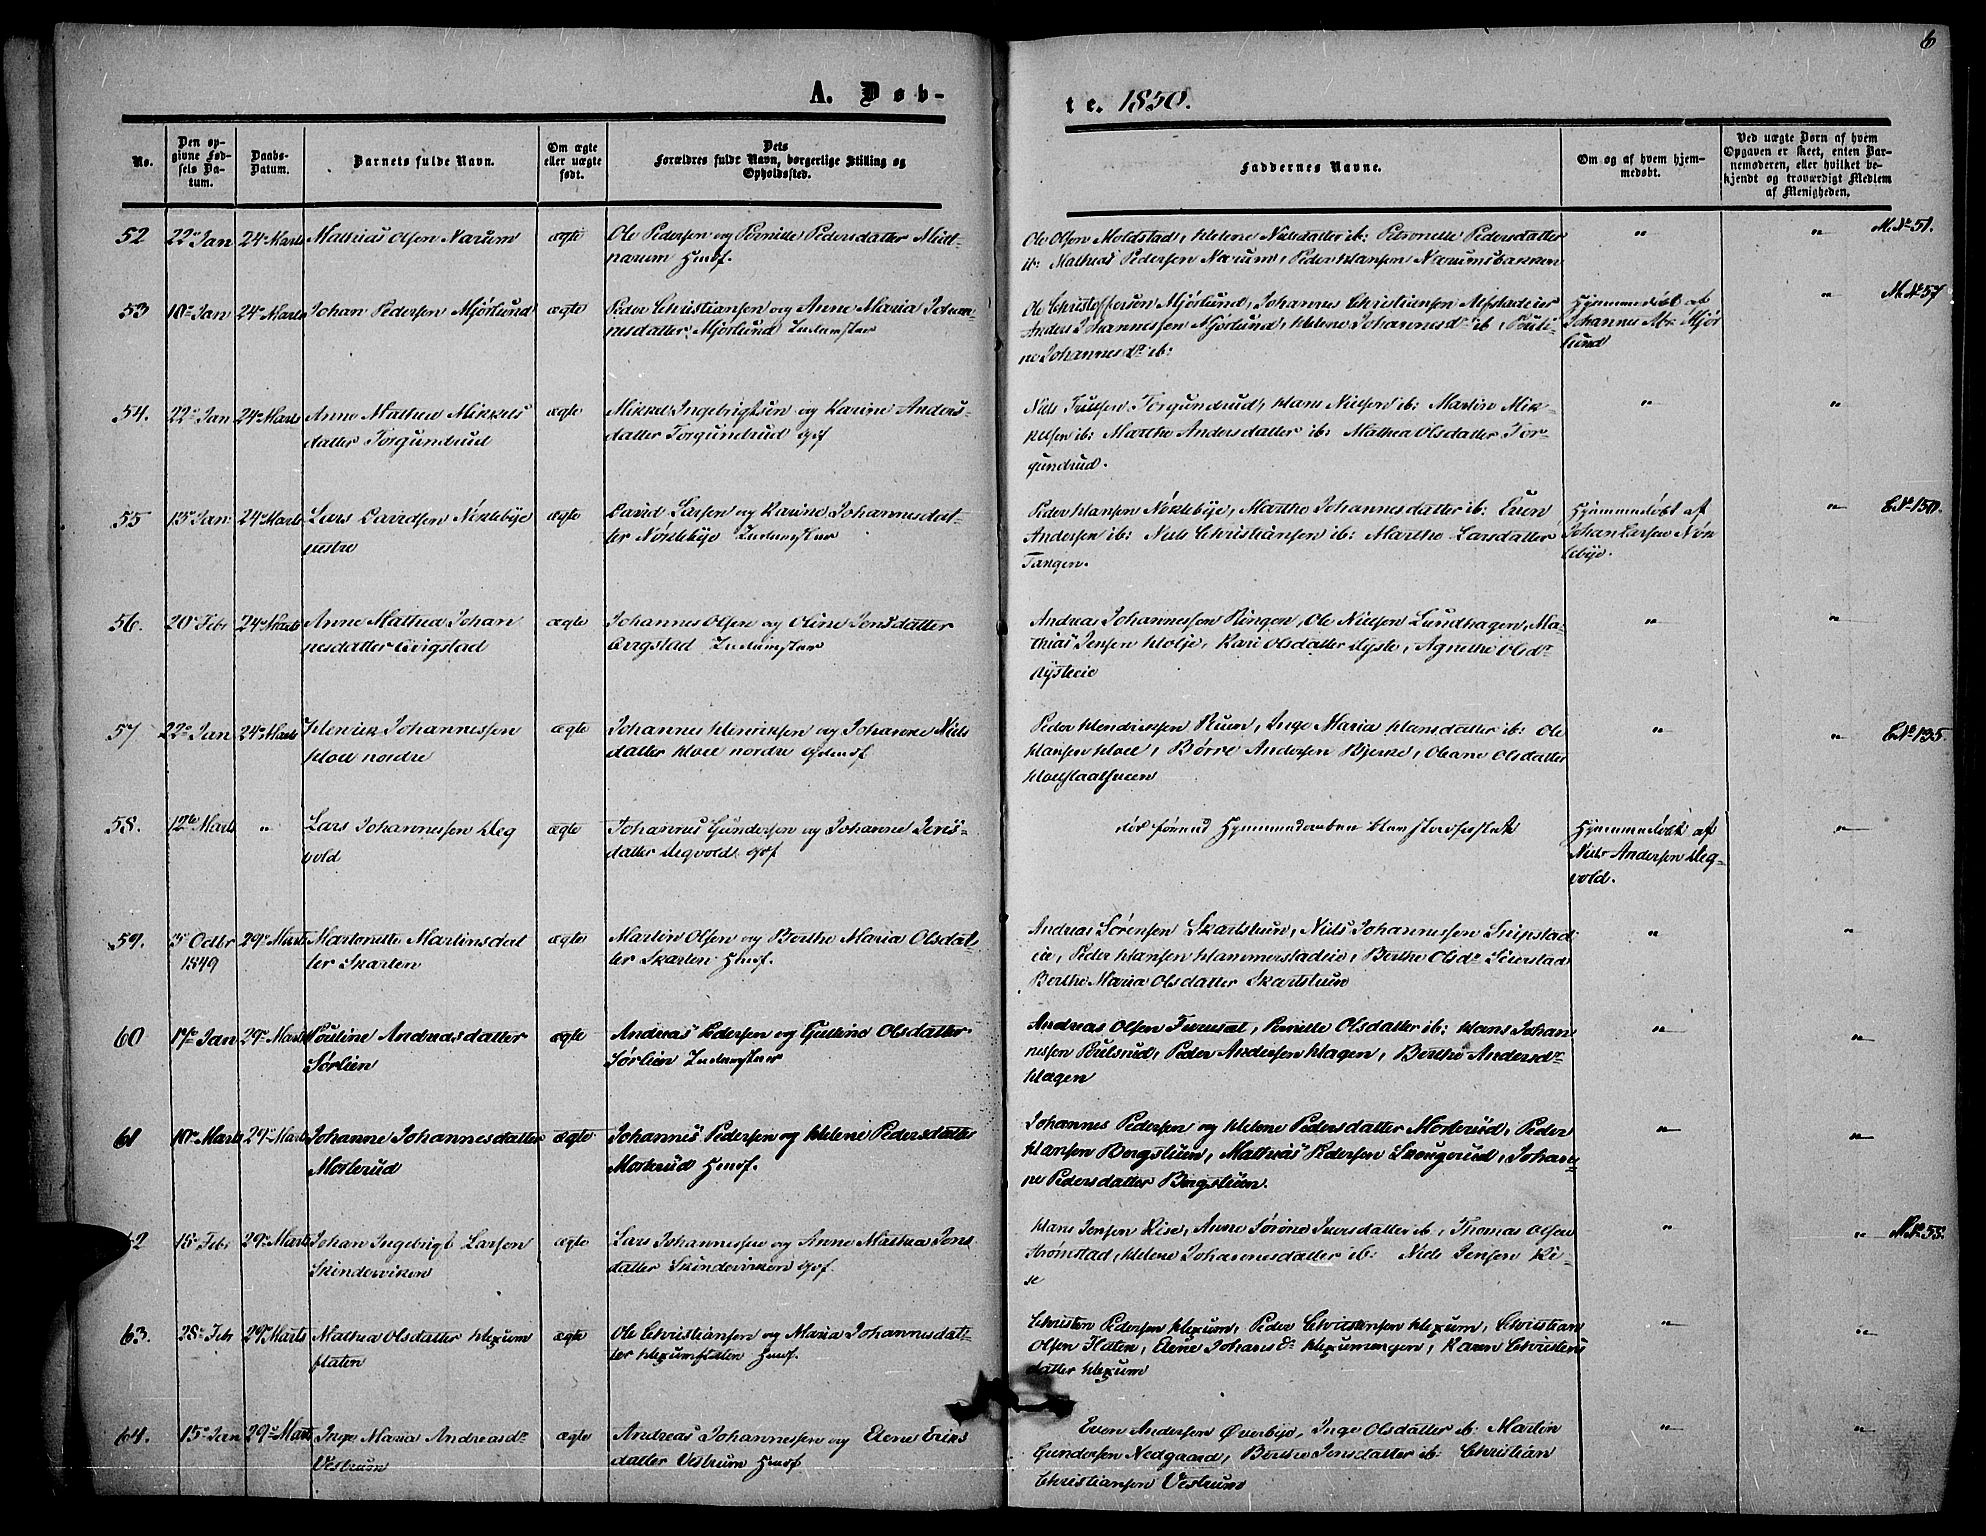 6
A. Døb-
te. 1850.
No.
Den op-
givne Fød-
sels Da-
tum.
Daabs-
Datum.
Barnets fulde Navn.
Om ægte
eller uægte
født.
Dets
Forældres fulde Navn, borgerlige Stilling og
Opholdssted.
Faddernes Navne.
Om og af hvem hjem-
medøbt.
Ved uægte Børn af hvem
Opgaven er skeet, enten Bar-
nemoderen, eller hvilket be-
kjendt og troværdigt Medlem
af Menigheden.
52 22de Jan 24de Marts Mathias Olsen Narum ægte Ole Pedersen og Pernille Pedersdatter
narum Hmdf.
Ole Olsen Moldstad, Helene Nielsdatter ib: Petronelle Pedersdatter
ib: Mathias Pedersen Narum, Peder Hansen Narumsbakken
" " M.No 51.
53 10de Jan 24de Marts Johan Pedersen Mjørlund ægte Peder Christiansen og Anne Maria Johan-
nesdatter Mjørlund Inderster
Ole Christoffersen Mjørlund, Johannes Christiansen
Anders Johannessen Mjørlund, Helene Johannesdr ib, Pouli-
ne Johannesdr ib:
Hjemmedøbt af
Johannes Mjør
lund
" M.No 57.
54. 22de Jan 24de Marts Anne Mathea Mikkels
datter Torgundrud
ægte Mikkel Ingebrigtsen og Karine Anders-
datter Torgundrud Gf
Niels Truelsen Torgundrud, Hans Nielsen ib: Martin Mik-
kelsen ib: Marthe Andersdatter ib: Mathea Olsdatter Tor-
gundrud.
" "
55 13de Jan 24de Marts Lars Davidsen Nøklebye
vestre
ægte David Larsen og Karine Johannesdat-
ter Nøklebye Inderster
Peder Hansen Nøklebye, Marthe Johannesdatter ib: Even
Andersen ib: Niels Christiansen ib: Marthe Larsdatter
Tangen.
Hjemmedøbt af
Johan Larsen Nøk
lebye.
" C.No 150.
56. 20de Febr 24de Marts Anne Mathea Johan
nesdatter Evigstad
ægte Johannes Olsen og Oline Jensdatter
Inderster
Andreas Johannessen Ringen, Ole Nielsen Lundhagen, Ma-
thias Jensen Kolje, Kari Olsdatter Kyste, Agnethe Olsdr
Kysteeie
" "
57 22de Jan 24de Marts Henrik Johannessen
Hoel nordre
ægte Johannes Henriksen og Johanne Niels
datter Hoel nordre
Peder Hendriksen Ruen, Inge Maria Hansdatter ib: Ole
Hansen Hoel, Børre Andersen Bjerke, Oleane Olsdatter
" " C.No 135.
58. 12te Marts " Lars Johannessen Heg
vold
ægte Johannes Gundersen og Johanne Jens-
datter Hegvold Gf
Hjemmedøbt af
Niels Andersen Heg-
vold.
"
59. 5 Octbr
1849
29de Marts Martinette Martinsdat
ter Skarten
ægte Martin Olsen og Berthe Maria Olsdat-
ter Skarten Hmdf.
Andreas Sørensen Skartstuen, Niels Johannessen Seipstad
eie, Peder Hansen Hammerstadeie, Berthe Olsdr Seierstad
Berthe Maria Olsdatter Skartstuen
" "
60 17de Jan 29de Marts Pouline Andreasdatter
Sørlien
ægte Andreas Pedersen og Gulline Olsdatter
Sørlien Inderster
Andreas Olsen Furuset, Pernille Olsdatter ib: Hans Johan
nessen Poulsrud, Peder Andersen Hagen, Berthe Andersdr
Hagen
" "
61 10de Marts 29de Marts Johanne Johannesdatter
Mosterud
ægte Johannes Pedersen og Helene Pedersdatter
Mosterud Hmdf.
Johannes Pedersen og Helene Pedersdatter Mosterud, Peder
Hansen Bergstuen, Mathias Pedersen Skougerud, Johan-
ne Pedersdatter Bergstuen.
" "
62 18de Febr 29de Marts Johan Ingebrigt Larsen
Skindeviken
ægte Lars Johannessen og Anne Mathea Jens
datter Skindeviken Gf.
Hans Jensen Rise, Anne Sørine Iversdatter ib, Thomas Olsen
Strømstad, Helene Johannesdatter ib: Niels Jensen Ri-
se
" " M.No 55.
63. 28de Feb 29de Marts Mathea Olsdatter Hexum
flaten
ægte Ole Christiansen og Maria Johannesdat-
ter Hexumflaten Hmdf.
Christen Pedersen Hexum, Peder Christensen Hexum, Christian
Olsen Flaten, Elene Johansdr Hexumengen, Karen Christens
datter Hexum
" "
64. 15de Jan 29de Marts Inge Maria Andreasdr
Vestrum
ægte Andreas Johannessen og Elene Eriks
datter Vestrum Hmdf
Even Andersen Øverbye, Inge Olsdatter ib: Martin
Gundersen Nedgaard, Berthe Jensdatter ib: Christian
Christiansen Vestrum
" "